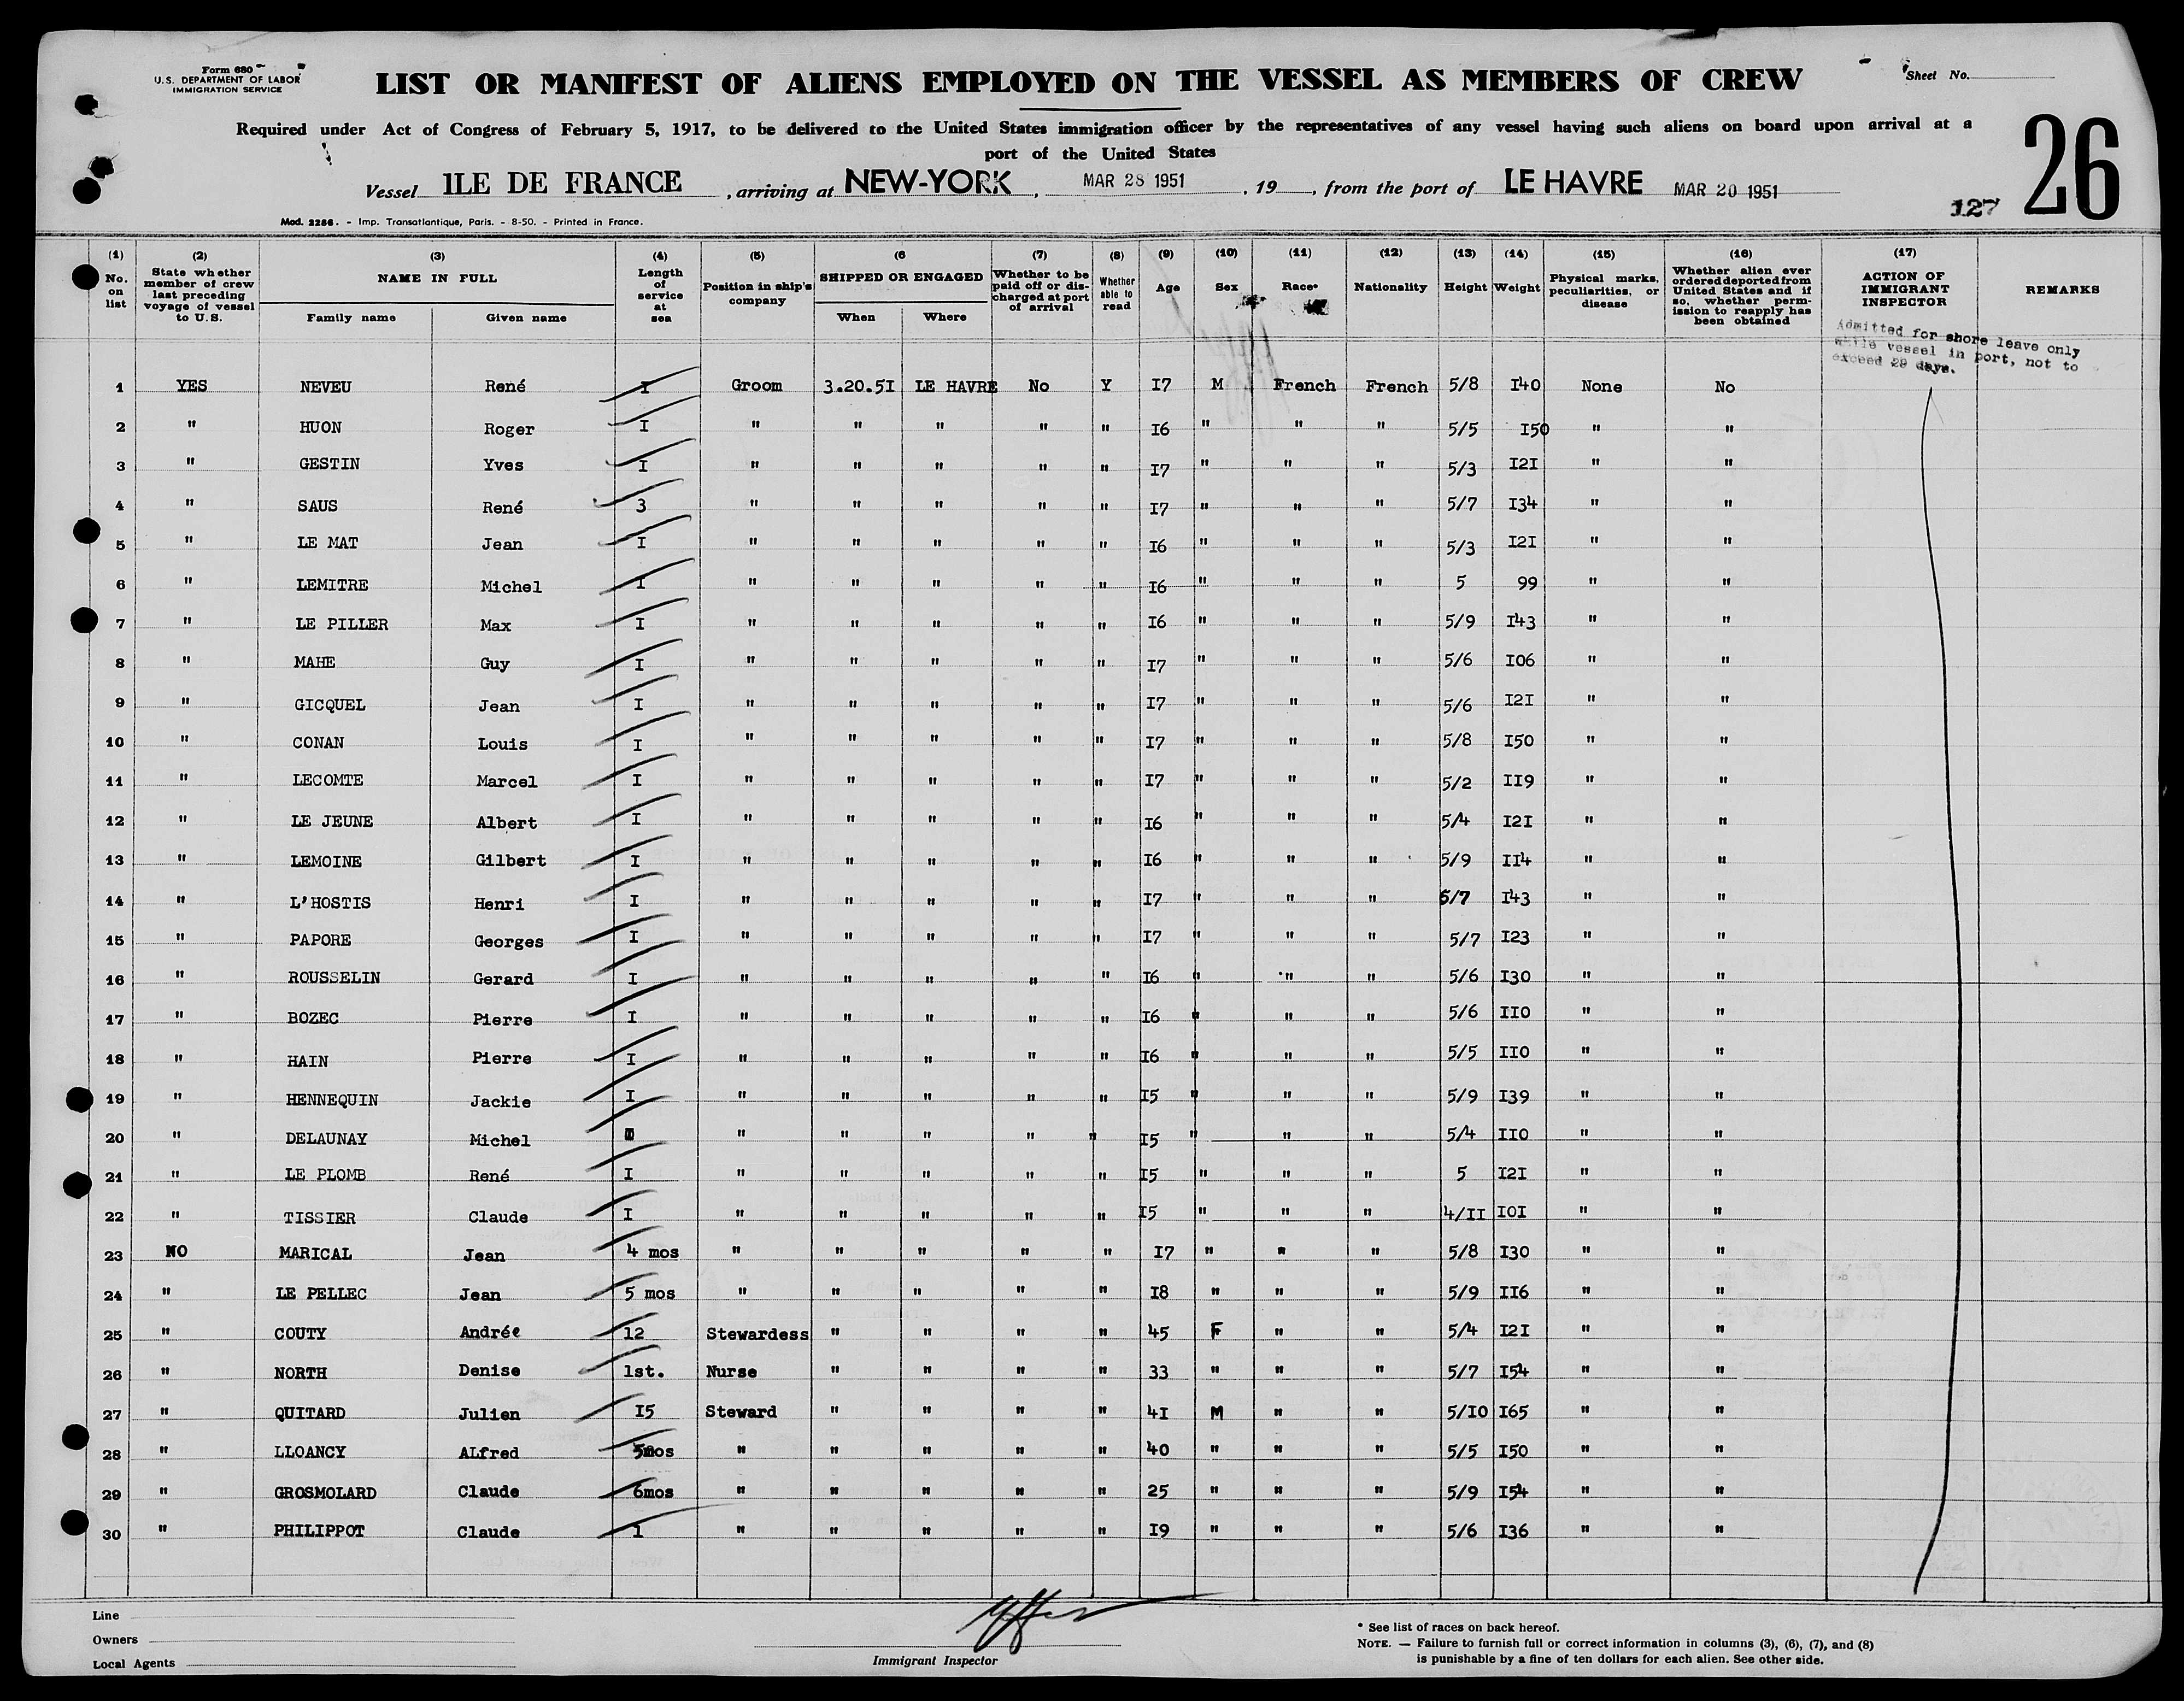 Form 680
U.S. DEPARTMENT OF LABOR
IMMIGRATION SERVICE
LIST OR MANIFEST OF ALIENS EMPLOYED ON THE VESSEL AS MEMBERS OF CREW
Sheet No.
Required under Act of Congress of February 5, 1917, to be delivered to the United States immigration officer by the representatives of any vessel having such aliens on board upon arrival at a
port of the United States
26
Vessel ILE DE FRANCE , arriving at NEW-YORK , MAR 28 1951 , 19 , from the port of LE HAVRE MAR 20 1951
127
Mod. 2286. - Imp. Transatlantique, Paris. - 8-50. - Printed in France.
(1) No. on list
(2) State whether member of crew last preceding voyage of vessel to U.S.
(3) NAME IN FULL Family name Given name
(4) Length of service at sea
(5) Position in ship's company
(6 SHIPPED OR ENGAGED When Where
(7) Whether to be paid off or discharged at port of arrival
(8) Whether able to read
(9) Age
(10) Sex
(11) Race*
(12) Nationality
(13) Height
(14) Weight
(15) Physical marks, peculiarities, or disease
(16) Whether alien ever ordered deported from United States and if so, whether permission to reapply has been obtained
(17) ACTION OF IMMIGRANT INSPECTOR
REMARKS
Admitted for shore leave only
while vessel in port, not to
exceed 29 days.
1 YES NEVEU René I Groom 3.20.5I LE HAVRE No Y I7 M French French 5/8 I40 None No
2 " HUON Roger I " " " " " I6 " " " 5/5 I50 " "
3 " GESTIN Yves I " " " " " I7 " " " 5/3 I2I " "
4 " SAUS René 3 " " " " " I7 " " " 5/7 I34 " "
5 " LE MAT Jean I " " " " " I6 " " " 5/3 I2I " "
6 " LEMITRE Michel I " " " " " I6 " " " 5 99 " "
7 " LE PILLER Max I " " " " " I6 " " " 5/9 I43 " "
8 " MAHE Guy I " " " " " I7 " " " 5/6 I06 " "
9 " GICQUEL Jean I " " " " " I7 " " " 5/6 I2I " "
10 " CONAN Louis I " " " " " I7 " " " 5/8 I50 " "
11 " LECOMTE Marcel I " " " " " I7 " " " 5/2 II9 " "
12 " LE JEUNE Albert I " " " " " I6 " " " 5/4 I2I " "
13 " LEMOINE Gilbert I " " " " " I6 " " " 5/9 II4 " "
14 " L'HOSTIS Henri I " " " " " I7 " " " 5/7 I43 " "
15 " PAPORE Georges I " " " " " I7 " " " 5/7 I23 " "
16 " ROUSSELIN Gerard I " " " " " I6 " " " 5/6 I30 " "
17 " BOZEC Pierre I " " " " " I6 " " " 5/6 II0 " "
18 " HAIN Pierre I " " " " " I6 " " " 5/5 II0 " "
19 " HENNEQUIN Jackie I " " " " " I5 " " " 5/9 I39 " "
20 " DELAUNAY Michel " " " " " I5 " " " 5/4 II0 " "
21 " LE PLOMB René I " " " " " I5 " " " 5 I2I " "
22 " TISSIER Claude I " " " " " I5 " " " 4/II I0I " "
23 NO MARICAL Jean 4 mos " " " " " I7 " " " 5/8 I30 " "
24 " LE PELLEC Jean 5 mos " " " " " I8 " " " 5/9 II6 " "
25 " COUTY Andrée 12 Stewardess " " " " 45 F " " 5/4 I2I " "
26 " NORTH Denise 1st. Nurse " " " " 33 " " " 5/7 I54 " "
27 " QUITARD Julien I5 Steward " " " " 4I M " " 5/I0 I65 " "
28 " LLOANCY ALfred mos " " " " " 40 " " " 5/5 I50 " "
29 " GROSMOLARD Claude 6mos " " " " " 25 " " " 5/9 I54 " "
30 " PHILIPPOT Claude 1 " " " " " I9 " " " 5/6 I36 " "
Line
Owners
Local Agents
Immigrant Inspector
* See list of races on back hereof.
NOTE. — Failure to furnish full or correct information in columns (3), (6), (7), and (8)
is punishable by a fine of ten dollars for each alien. See other side.